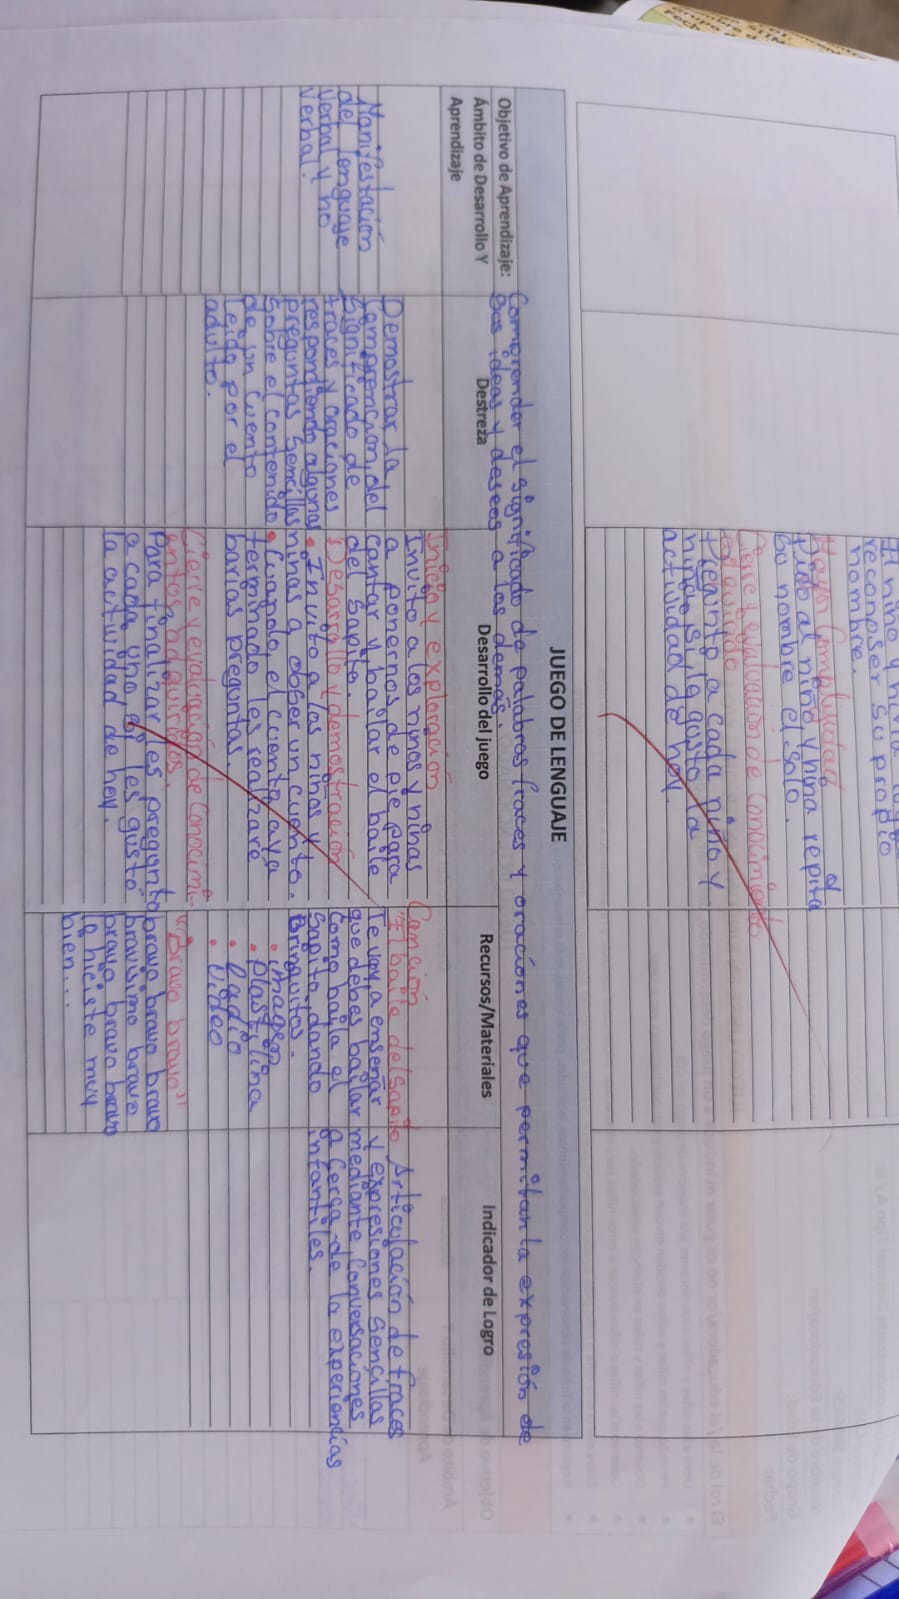 nombre.
Mayor Complejidad
Pido al niño y niña repita
su nombre el solo.
Cierre y evaluación de conocimiento
adquirido
Pregunto a cada niño y
niña si le gusto la
actividad de hoy.
JUEGO DE LENGUAJE
Objetivo de Aprendizaje: Comprender el significado de palabras fraces y oraciones que permitan la expresión de
sus ideas y deseos a los demás.
Ámbito de Desarrollo Y
Aprendizaje
Destreza
Desarrollo del juego
Recursos/Materiales
Indicador de Logro
Manifestación
del lenguaje
verbal y no
verbal.
Demostrar la
comprencion del
significado de
fraces y oraciones
respondiendo algunas
preguntas sencillas
sobre el contenido
de un cuento
leido por el
adulto.
Inicio y exploración
Invito a los niños y niñas
a ponernos de pie para
cantar y bailar el baile
del sapito.
Desarrollo y demostración
• Invito a los niños y
niñas a obser un cuento.
• Cuando el cuento aya
terminado les realizare
barias preguntas.
Cierre y evaluación de conocimi-
entos adquiridos.
Para finalizar les pregunto
a cada uno si les gusto
la actividad de hoy.
Canción
"El baile del sapito
Te voy a enseñar
que debes bailar
como baila el
sapito dando
Brinquitos.
• imagen
• plastilina
• Radio
• Video
"Bravo bravo"
bravo bravo bravo
bravisimo bravo
bravo bravo bravo
lo hiciste muy
bien....
Articulación de fraces
y expresiones sencillas
mediante conversaciones
a cerca de la experiencias
infantiles.